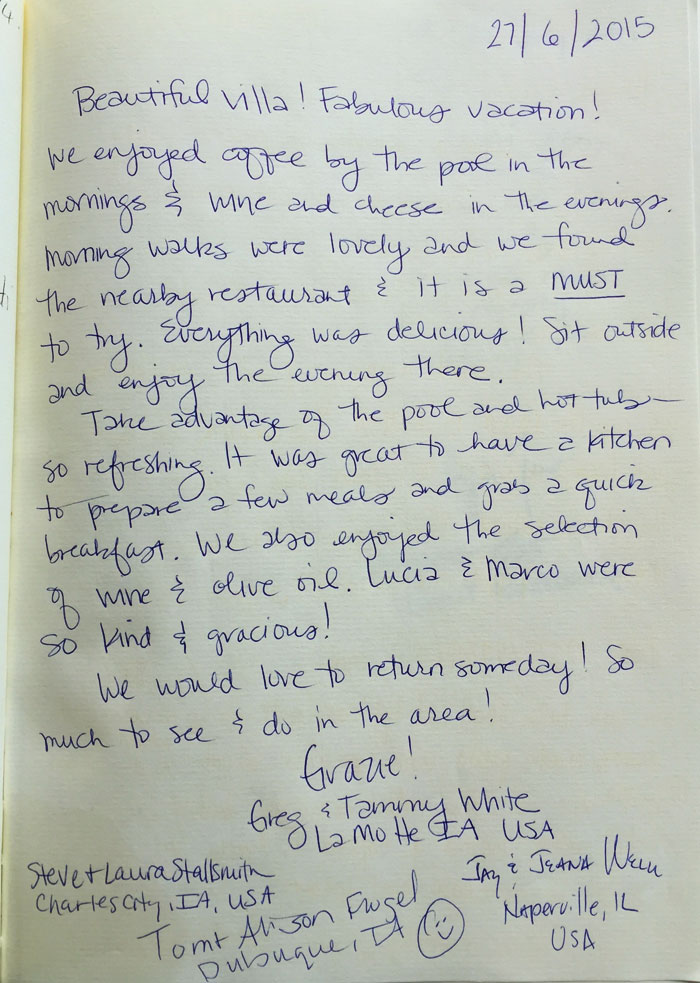 27/6/2015
Beautiful Villa! Fabulous vacation!
We enjoyed coffee by the pool in the
mornings & wine and cheese in the evenings.
Morning walks were lovely and we found
the nearby restaurant & it is a MUST
to try. Everything was delicious! Sit outside
and enjoy the evening there.
Take advantage of the pool and hot tub—
so refreshing. It was great to have a kitchen
to prepare a few meals and grab a quick
breakfast. We also enjoyed the selection
of wine & olive oil. Lucia & Marco were
so kind & gracious!
We would love to return someday! So
much to see & do in the area!
Grazie!
Greg & Tammy White
LaMotte IA USA
Steve + Laura Stallsmith
Charles City, IA, USA
Tom + Alison
Dubuque, IA
Jay & Jeana
Naperville, IL
USA